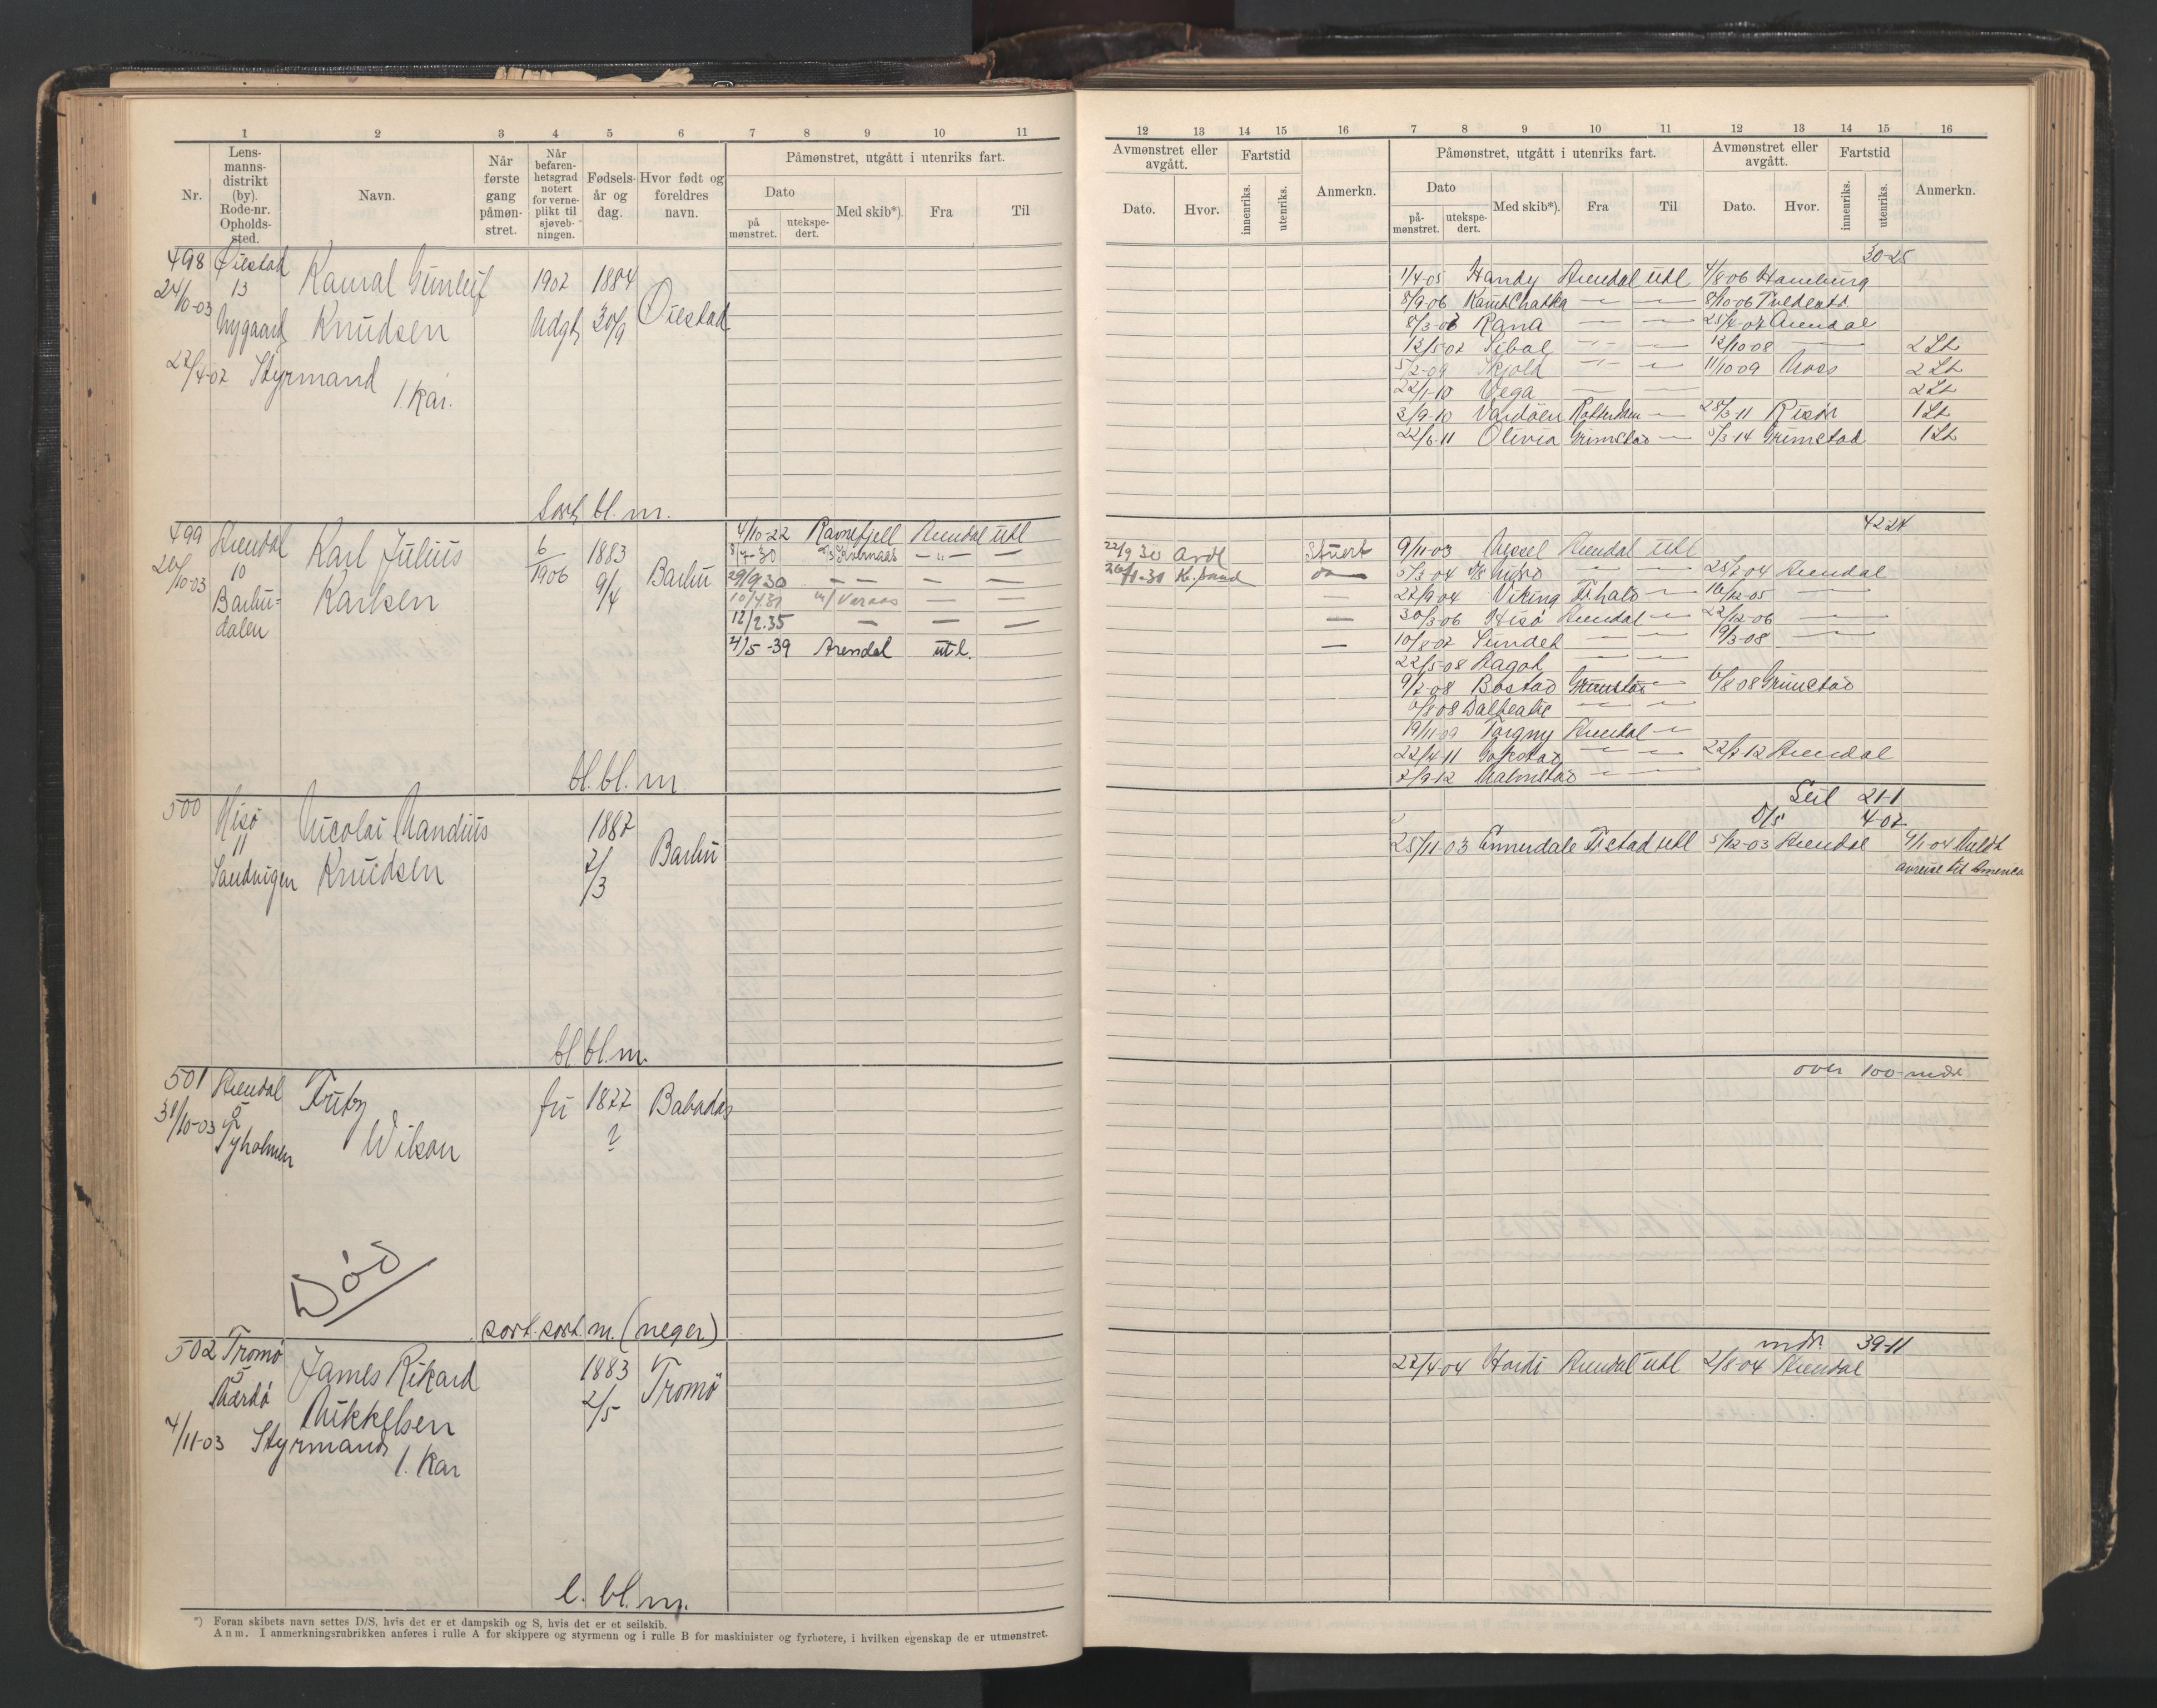 1 2 3 4 5 6 7 8 9 10 11
Nr.
Lens-
manns-
distrikt
(by).
Rode-nr.
Opholds-
sted.
Navn.
Når
første
gang
påmøn-
stret.
Når
befaren-
hetsgrad
notert
for verne-
plikt til
sjøveb-
ningen.
Fødsels-
år og
dag.
Hvor født og
foreldres
navn.
Påmønstret, utgått i utenriks fart.
Dato
på
mønstret.
utekspe-
dert.
Med skib*).
Fra
Til
498 Øiestad
24/10-03 13
Nygaard
Kamal Gunluf
Knudsen
1902
Udgt
1884
30/9
Øiestad
27/4-07 Styrmand
1. kar.
Sort, bl. m.
499 Arendal
20/10-03 10
Barbu-
dalen
Karl Julius
Karlsen
6/1906
1883
9/4
Barbu
4/10-22 Ravnefjell Arendal utl
8/7-30 - " - —
29/9 30 — — — —
10/4.31 m/ Varaas —
12/2.35 — — —
21/5-39 Arendal utl.
bl. bl. m
500 Hisø
11
Sandvigen
Nicolai Mandius
Knudsen
1887
7/3
Barbu
bl. bl. m.
501 Arendal
31/10-03 2
Tyholmen
Wilson
fu
1877
?
Babadas
Død
sort. sort. m. (neger)
502 Tromø
5
Mærdø
James Rikard
Mikkelsen
1883
2/5
Tromø
4/11-03 Styrmand
1. Kar
l. bl. m.
*) Foran skibets navn settes D/S, hvis det er et dampskib og S, hvis det er et seilskib.
Anm. I anmerkningsrubrikken anføres i rulle A for skippere og styrmenn og i rulle B for maskinister og fyrbøtere, i hvilken egenskap de er utmønstret.
12 13 14 15 16 7 8 9 10 11 12 13 14 15 16
Avmønstret eller
avgått.
Dato.
Hvor.
Fartstid
innenriks.
utenriks.
Anmerkn.
Påmønstret, utgått i utenriks fart.
Dato
på-
mønstret.
utekspe-
dert.
Med skib*).
Fra
Til
Avmønstret eller
avgått.
Dato.
Hvor.
Fartstid
innenriks.
utenriks.
Anmerkn.
30-25
1/4-05 Handy Arendal utl 4/8 06 Hamburg
8/9-06 KamtChatka — — 8/10-06
8/3-07 Rana — — 25/4-07 Arendal
13/5-07 Sibal — — 12/10-08 — 2 St
5/2-09 Skjold — — 11/10 09 Moss 2 St
22/1-10 Vega — — 2 St
3/9-10 Vardøen Rotterdam — 28/3-11 Risør 1 St
22/6-11 Olivia Grimstad — 5/3-14 Grimstad 1 St
4224
22/9 30 Ardl Stuert
26/11-31 Kr.sand do —
9/11-03 Arendal utl
5/3-04 D/S — — 25/7-04 Arendal
27/9-04 Viking Fr.hald — 10/12-05 —
30/3-06 Hisø Arendal — 22/12-06 —
10/8-07 Sundet — — 19/3-08 —
22/5-08 Dagot — —
9/7-08 Bostad Grimstad — 6/8 08 Grimstad
6/8 08 Dalbeatie — —
19/11-09 Torgny Arendal —
22/4-11 Gokstad — — 22/7-12 Arendal
7/9-12 Malmstad — —
Seil 21-1
D/S 4-07
25/11-03 Ennerdale Fr.stad utl 5/12-03 Arendal 4/1-04 Meldt
avreise til America
over 100 mdr
mdr. 39-11
27/4-04 Hardi Arendal utl 2/8-04 Arendal